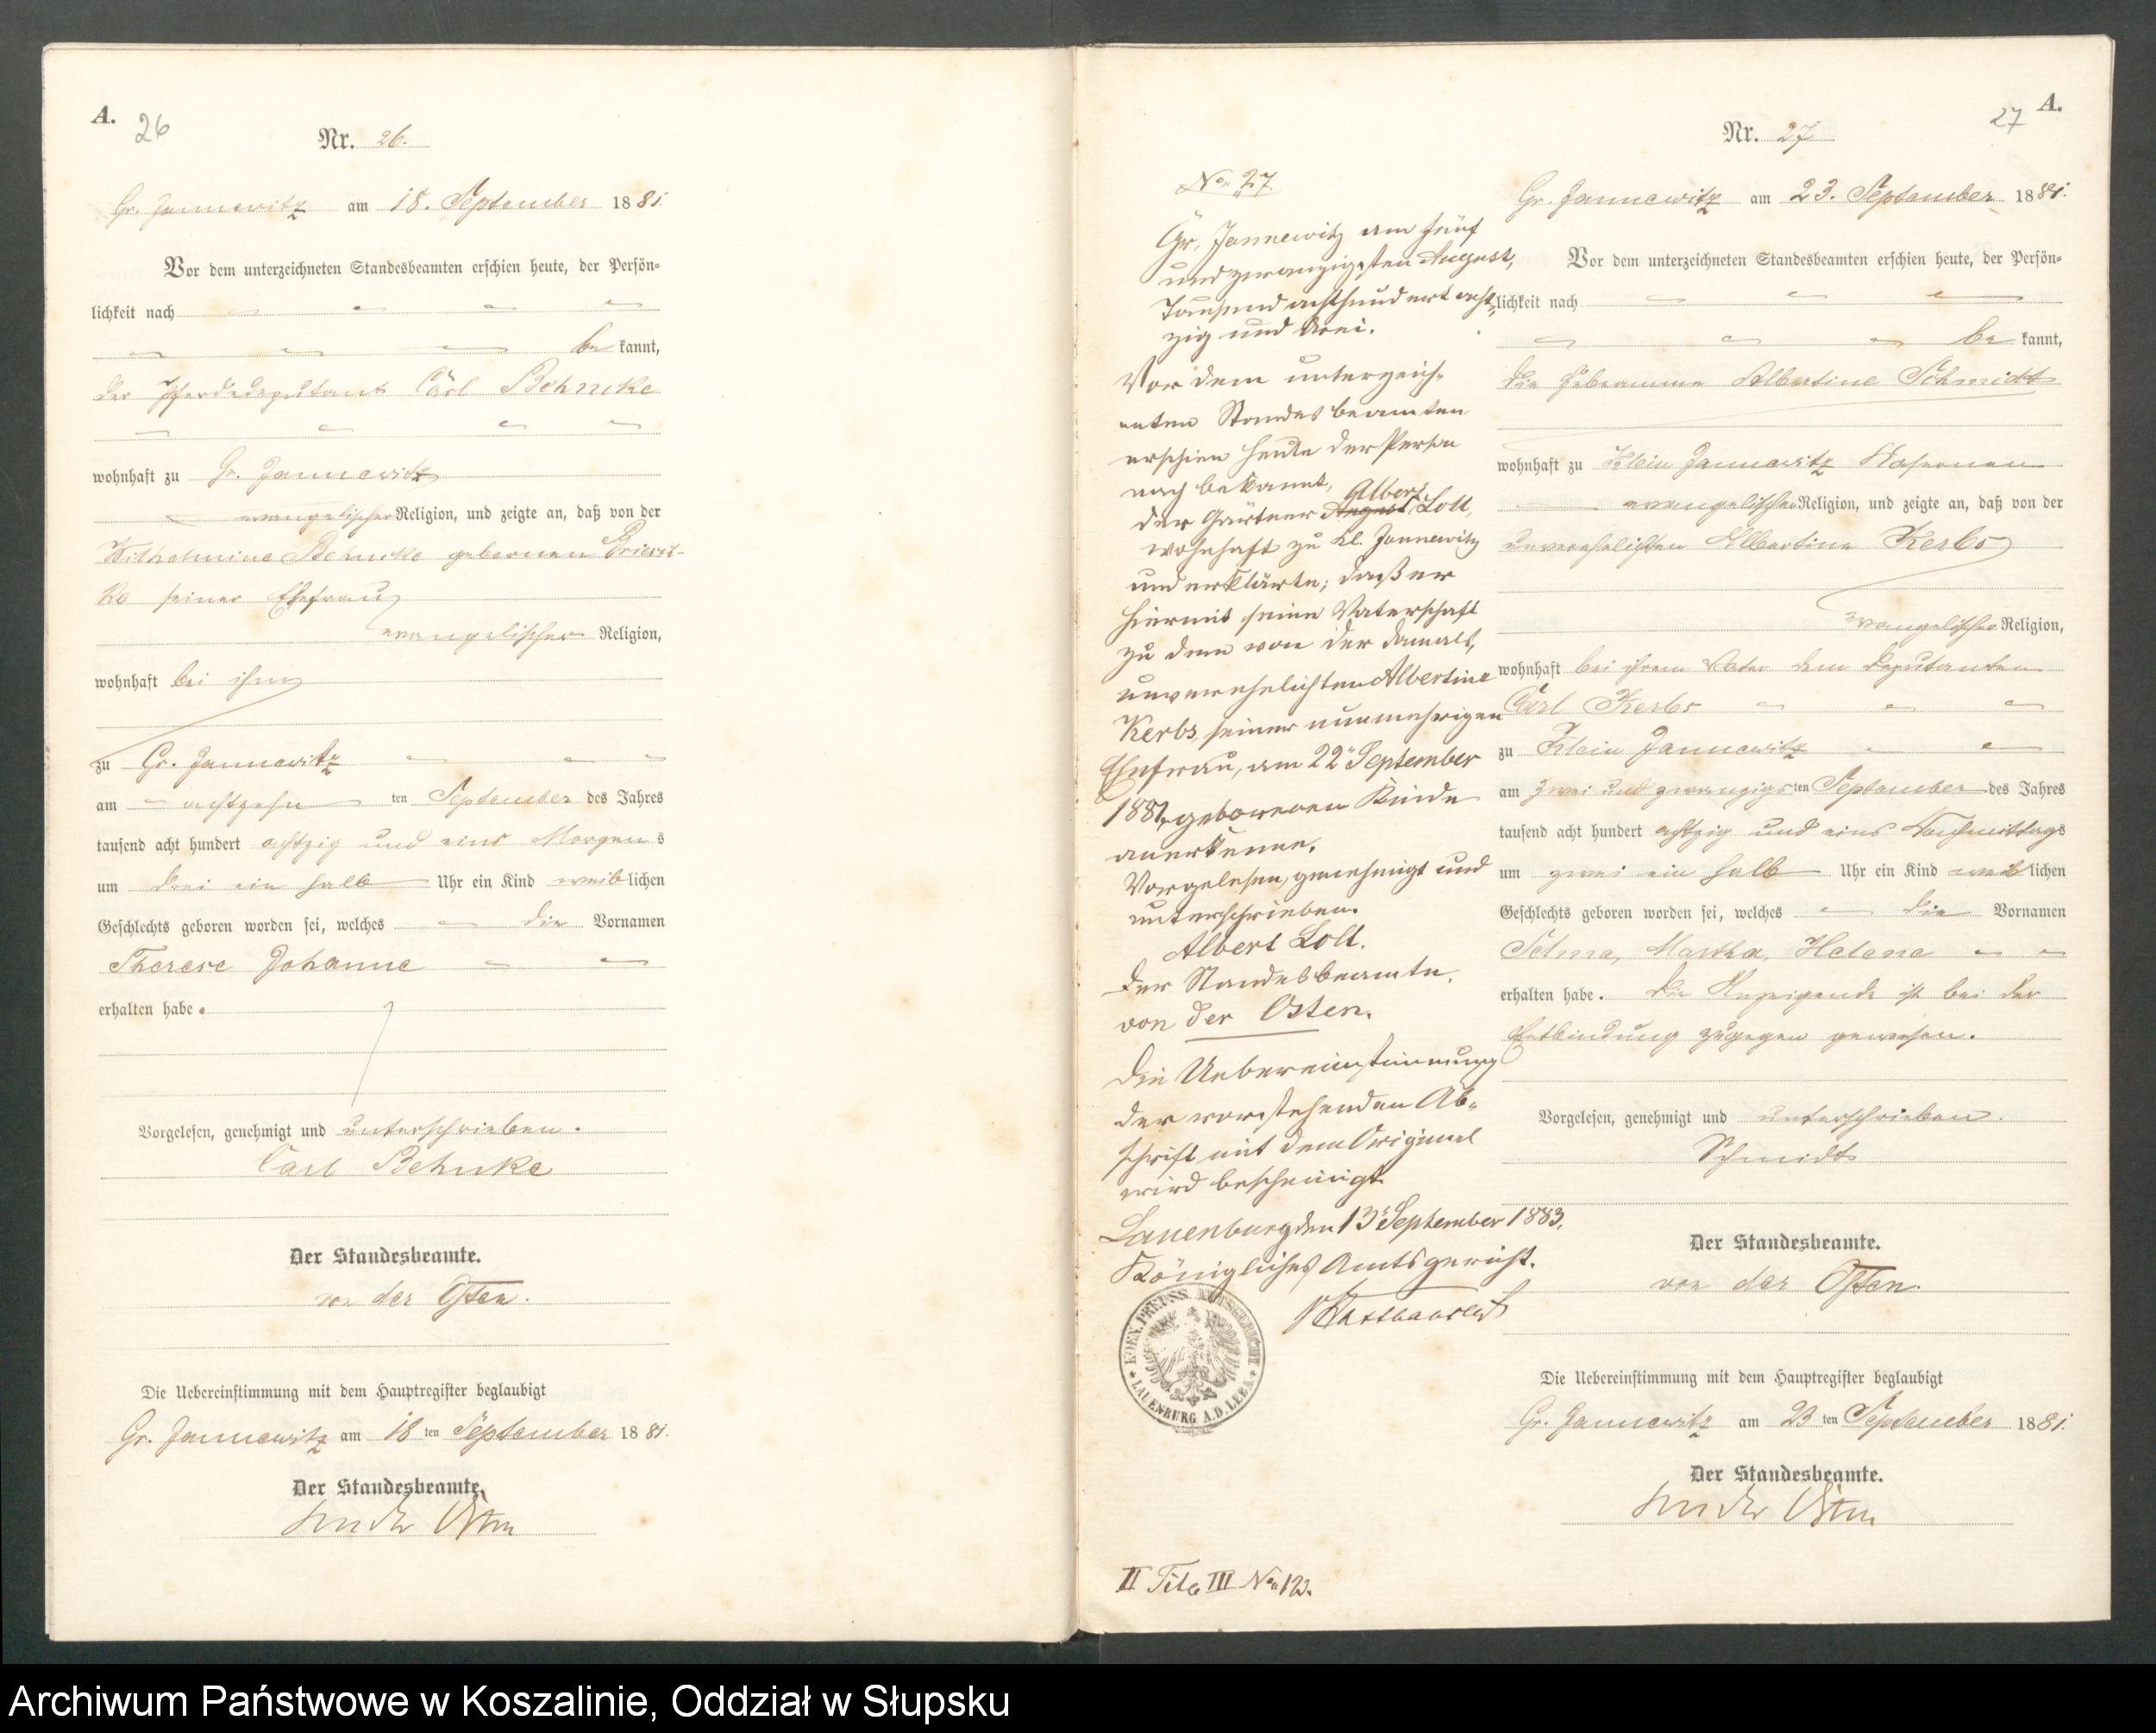 A.
26
Nr. 26.
Gr. Jannewitz am 18. September 1881.
Vor dem unterzeichneten Standesbeamten erschien heute, der Persön=
lichkeit nach
be kannt,
der Pferdedeputant Carl Behncke
wohnhaft zu Gr. Jannewitz
evangelischer Religion, und zeigte an, daß von der
Wilhelmine Behncke geborenen
seiner Ehefrau
evangelischer Religion,
wohnhaft bei ihm
zu Gr. Jannewitz
am achtzehn ten September des Jahres
tausend acht hundert achtzig und eins Morgens
um drei ein halb Uhr ein Kind weiblichen
Geschlechts geboren worden sei, welches die Vornamen
Therese Johanne
erhalten habe.
Vorgelesen, genehmigt und unterschrieben.
Carl Behnke
Der Standesbeamte.
von der Osten.
Die Uebereinstimmung mit dem Hauptregister beglaubigt
Gr. Jannewitz am 18 ten September 1881.
Der Standesbeamte.
von der Osten
No. 27
Gr. Jannewitz am fünf
und zwanzigsten August,
Tausend achthundert acht=
zig und drei.
Vor dem unterzeich=
neten Standesbeamten
erschien heute der Person
nach bekannt,
Albert
der Gärtner August Loll,
wohnhaft zu Kl. Jannewitz
und erklärte, daß er
hiermit seine Vaterschaft
zu dem von der damals,
unverehelichten Albertine
Kerbs, seiner nunmehrigen
Ehefrau, am 22. September
1881, geborenen Kinde
anerkenne.
Vorgelesen, genehmigt und
unterschrieben.
Albert Loll.
Der Standesbeamte.
von der Osten.
Die Uebereinstimmung
der vorstehenden Ab=
schrift mit dem Original
wird bescheinigt.
Lauenburg den 13. September 1883.
Königliches Amtsgericht.
KOEN. PREUSS. AMTSGERICHT
LAUENBURG A.D. LEBA
II Tit. III No.
27
A.
Nr. 27
Gr. Jannewitz am 23. September 1881.
Vor dem unterzeichneten Standesbeamten erschien heute, der Persön=
lichkeit nach
be kannt,
die Hebeamme Albertine Schmidt
wohnhaft zu Klein Jannewitz
evangelischer Religion, und zeigte an, daß von der
unverehelichten Albertine Kerbs
evangelischer Religion,
wohnhaft bei ihrem Vater dem Deputanten
Carl Kerbs
zu Klein Jannewitz
am zwei und zwanzigsten September des Jahres
tausend acht hundert achtzig und eins Nachmittags
um zwei ein halb Uhr ein Kind weiblichen
Geschlechts geboren worden sei, welches die Vornamen
Selma, Martha, Helene
erhalten habe. Die Anzeigende ist bei der
Entbindung zugegen gewesen.
Vorgelesen, genehmigt und unterschrieben.
Schmidt
Der Standesbeamte.
von der Osten.
Die Uebereinstimmung mit dem Hauptregister beglaubigt
Gr. Jannewitz am 23 ten September 1881.
Der Standesbeamte.
von der Osten
Archiwum Państwowe w Koszalinie, Oddział w Słupsku